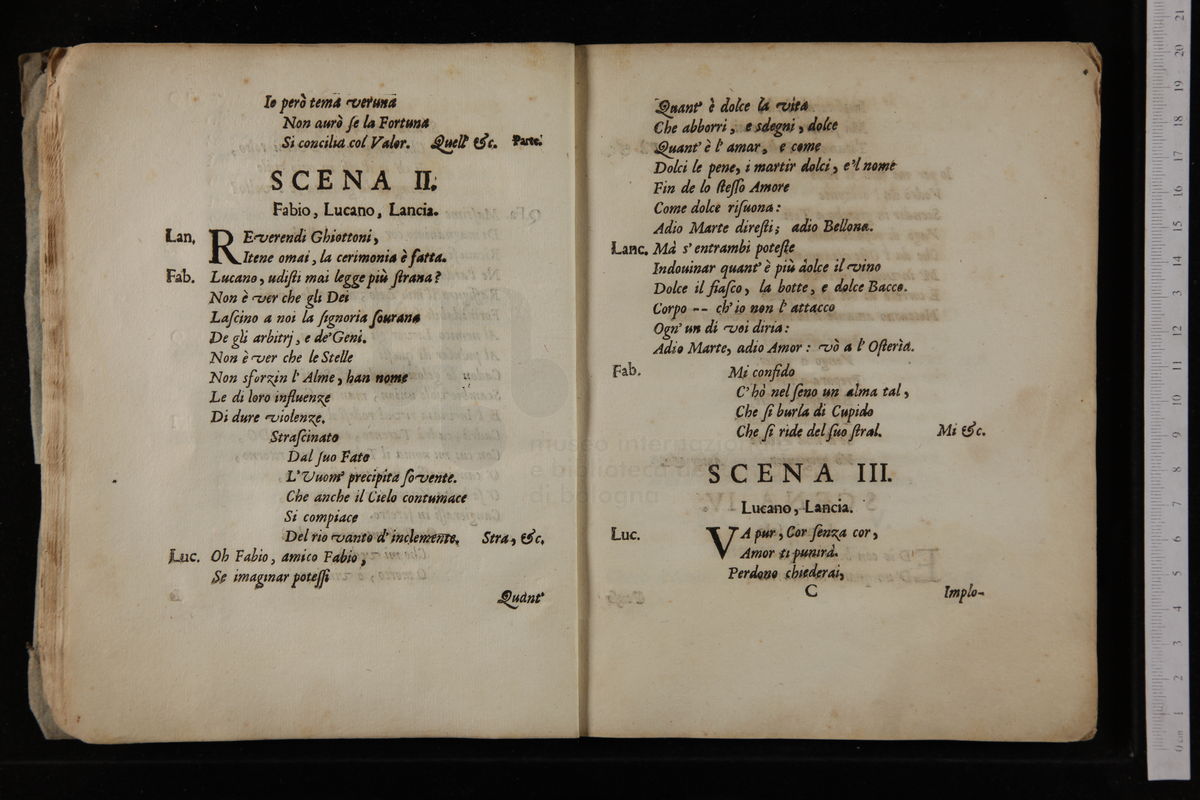 Io però temā verunā
Non aurò ſe la Fortuna
Si concilia col Valor. Quell' &c. Parte.
SCENA II.
Fabio, Lucano, Lancia.
Lan. REverendi Ghiottoni,
Itene omai, la cerimonia è fatta.
Fab. Lucano, udiſti mai legge più ſtrana?
Non è ver che gli Dei
Laſcino a noi la ſignoria ſourana
De gli arbitrj, e de' Geni.
Non è ver che le Stelle
Non sforzin l' Alme, han nome
Le di loro influenze
Di dure violenze.
Straſcinato
Dal ſuo Fato
L'Vuom' precipita ſovente.
Che anche il Cielo contumace
Si compiace
Del rio vanto d' inclemente. Stra, &c.
Luc. Oh Fabio, amico Fabio,
Se imaginar poteſſi
Quant'
Quant' è dolce la vita
Che abborri, e sdegni, dolce
Quant' è l' amar, e come
Dolci le pene, i martir dolci, e'l nome
Fin de lo ſteſſo Amore
Come dolce riſuona:
Adio Marte direſti; adio Bellona.
Lanc. Mà s' entrambi poteſte
Indouinar quant' è più dolce il vino
Dolce il fiaſco, la botte, e dolce Bacco.
Corpo -- ch' io non l' attacco
Ogn' un di voi diria:
Adio Marte, adio Amor: vò a l' Oſterìa.
Fab. Mi confido
C' hò nel ſeno un alma tal,
Che ſi burla di Cupido
Che ſi ride del ſuo ſtral. Mi &c.
SCENA III.
Lucano, Lancia.
Luc. VA pur, Cor ſenza cor,
Amor ti punirà.
Perdono chiederai,
C Implo-
museo internazionale
e biblioteca della
di bologna